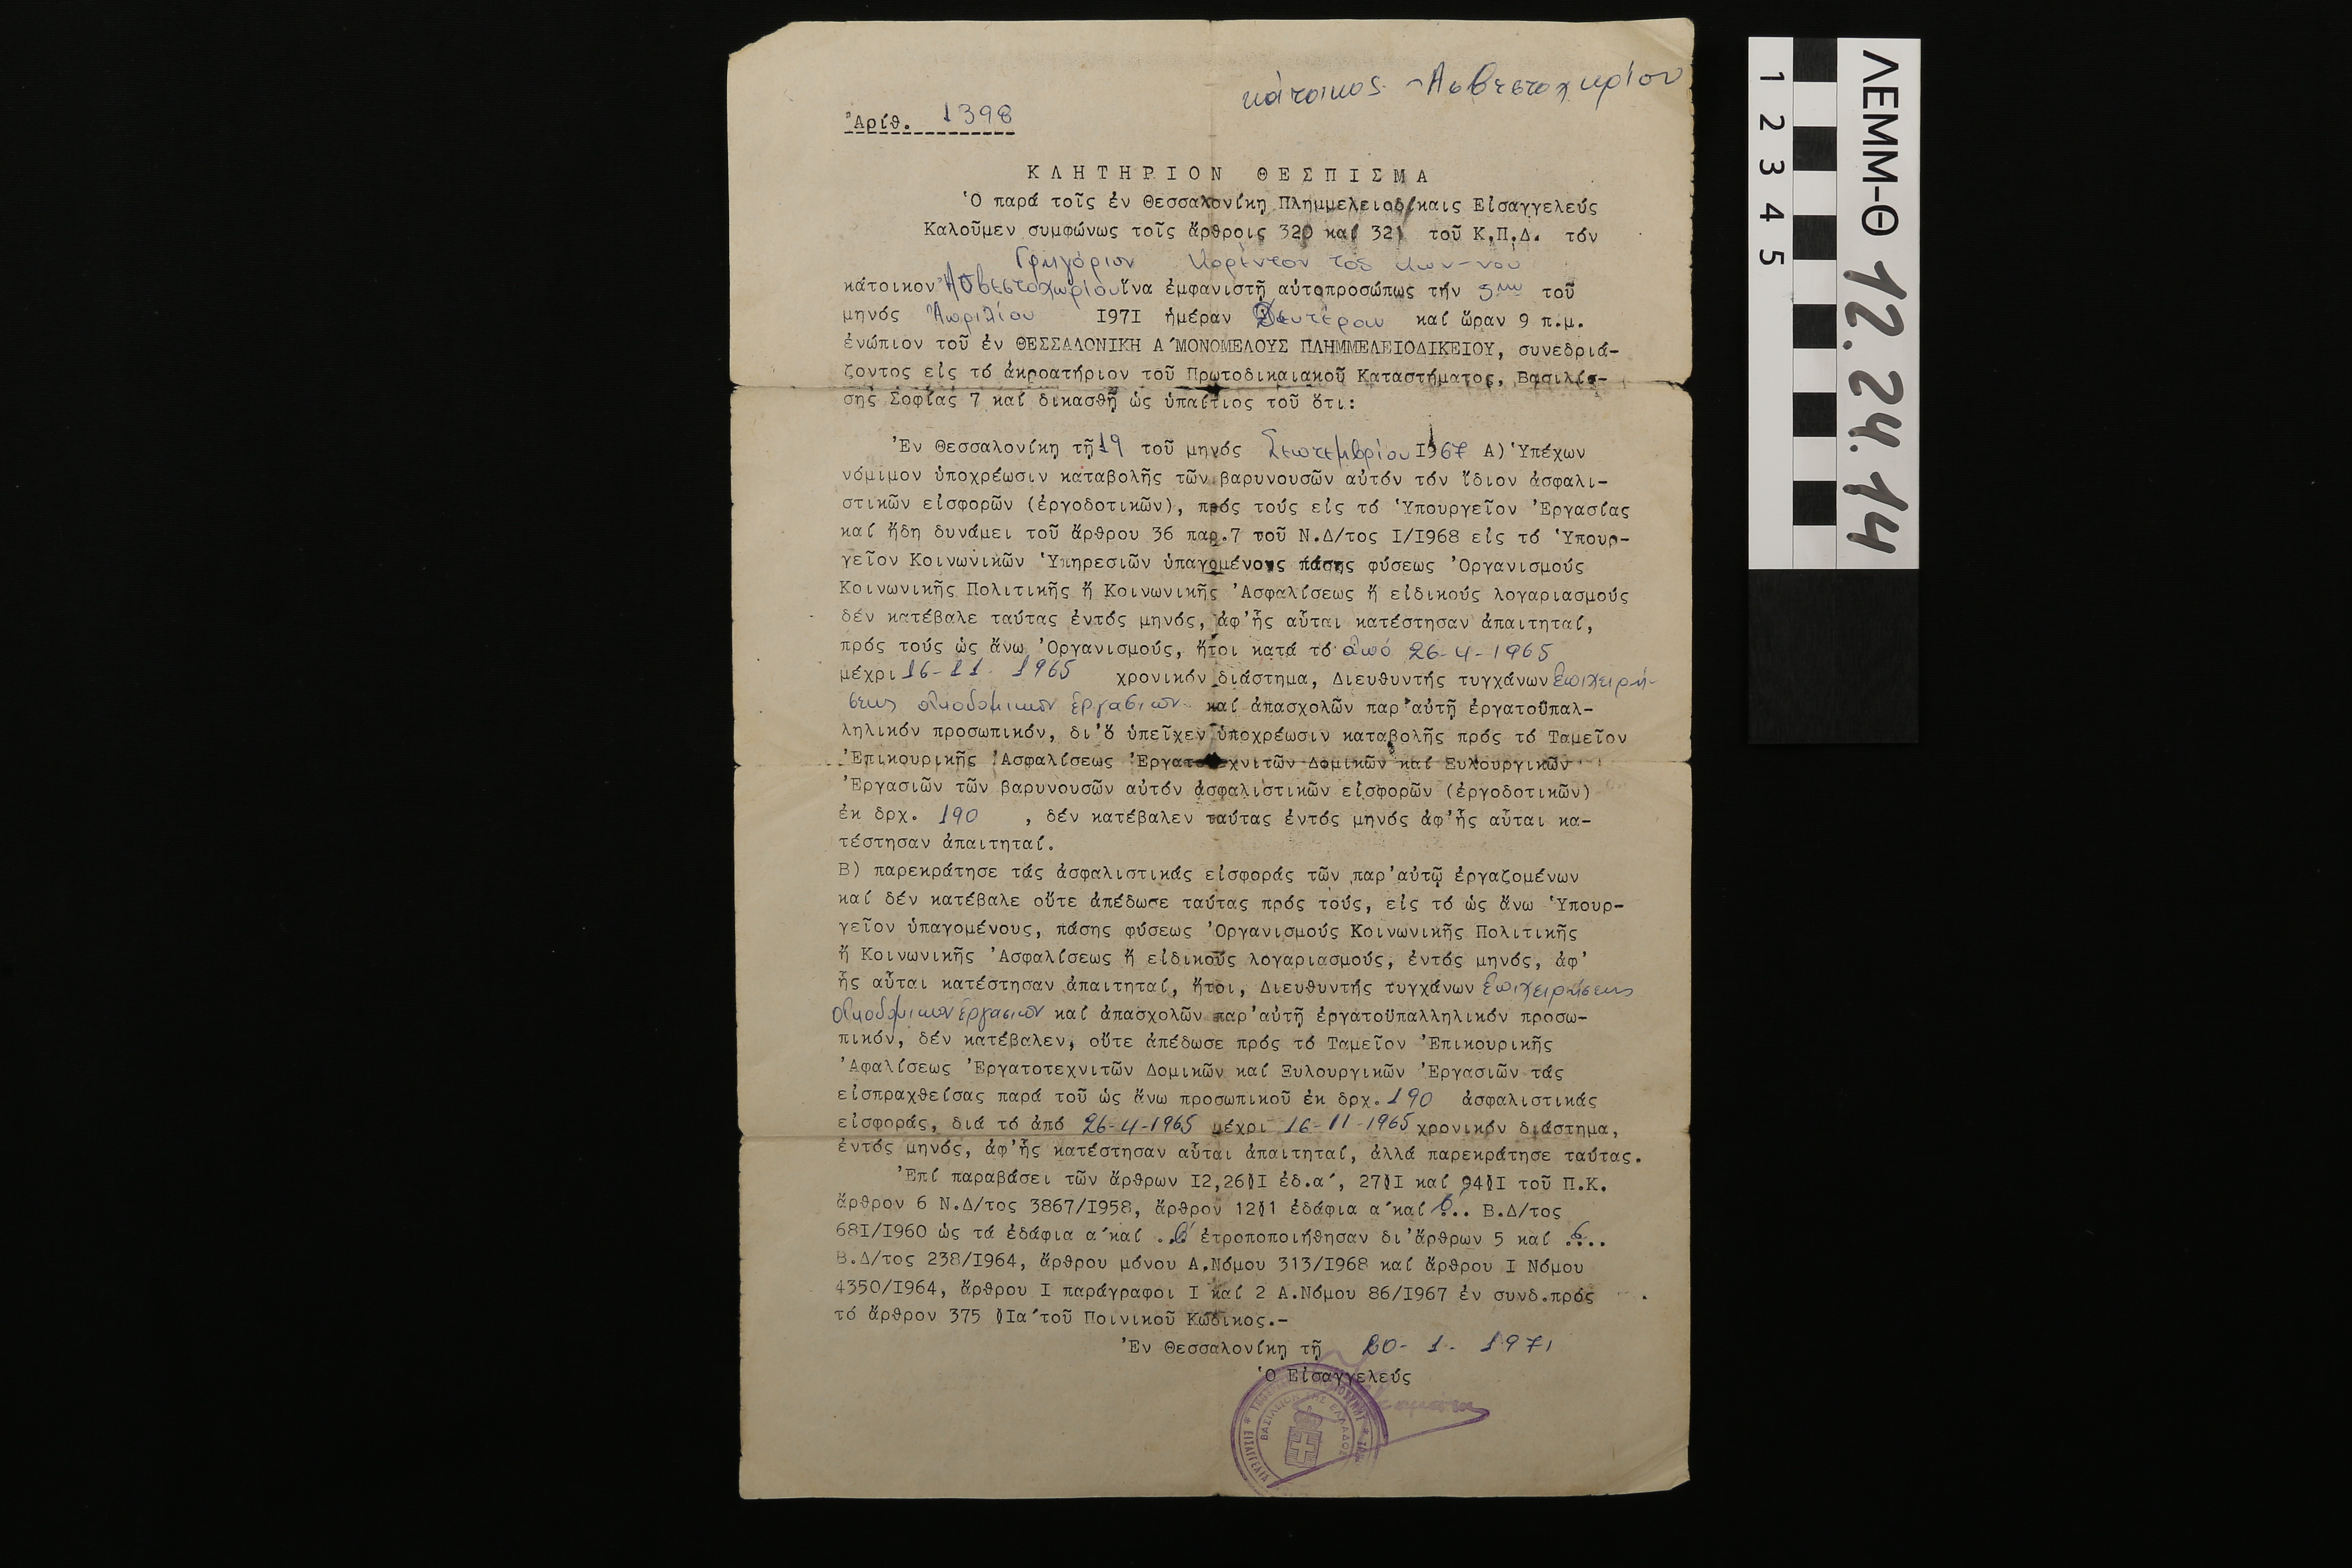 κάτοικος - Ἀσβεστοχωρίου
Ἀριθ. 1398
ΚΛΗΤΗΡΙΟΝ ΘΕΣΠΙΣΜΑ
Ὁ παρά τοῖς ἐν Θεσσαλονίκῃ Πλημμελειοδίκαις Εἰσαγγελεύς
Καλοῦμεν συμφώνως τοῖς ἄρθροις 320 καί 321 τοῦ Κ.Π.Δ. τόν
Γρηγόριον τοῦ Κων-νου
κάτοικον Ἀσβεστοχωρίου ἵνα ἐμφανιστῇ αὐτοπροσώπως τήν 5ην τοῦ
μηνός Ἀπριλίου I97I ἡμέραν Δευτέραν καί ὥραν 9 π.μ.
ἐνώπιον τοῦ ἐν ΘΕΣΣΑΛΟΝΙΚΗ Α´ΜΟΝΟΜΕΛΟΥΣ ΠΛΗΜΜΕΛΕΙΟΔΙΚΕΙΟΥ, συνεδριά-
ζοντος εἰς τό ἀκροατήριον τοῦ Πρωτοδικαιακοῦ Καταστήματος, Βασιλίσ-
σης Σοφίας 7 καί δικασθῇ ὡς ὑπαίτιος τοῦ ὅτι:
Ἐν Θεσσαλονίκῃ τῇ 19 τοῦ μηνός Σεπτεμβρίου I967 Α) Ὑπέχων
νόμιμον ὑποχρέωσιν καταβολῆς τῶν βαρυνουσῶν αὐτόν τόν ἴδιον ἀσφαλι-
στικῶν εἰσφορῶν (ἐργοδοτικῶν), πρός τούς εἰς τό Ὑπουργεῖον Ἐργασίας
καί ἤδη δυνάμει τοῦ ἄρθρου 36 παρ.7 τοῦ Ν.Δ/τος I/I968 εἰς τό Ὑπουρ-
γεῖον Κοινωνικῶν Ὑπηρεσιῶν ὑπαγομένους πάσης φύσεως Ὀργανισμούς
Κοινωνικῆς Πολιτικῆς ἤ Κοινωνικῆς Ἀσφαλίσεως ἤ εἰδικούς λογαριασμούς
δέν κατέβαλε ταύτας ἐντός μηνός, ἀφ'ἧς αὗται κατέστησαν ἀπαιτηταί,
πρός τούς ὡς ἄνω Ὀργανισμούς, ἤτοι κατά τό ἀπό 26-4-1965
μέχρι 16-11-1965 χρονικόν διάστημα, Διευθυντής τυγχάνων Ἐπιχειρή-
σεως οἰκοδομικῶν ἐργασιῶν καί ἀπασχολῶν παρ'αὐτῇ ἐργατοϋπαλ-
ληλικόν προσωπικόν, δι'ὅ ὑπεῖχεν ὑποχρέωσιν καταβολῆς πρός τό Ταμεῖον
Ἐπικουρικῆς Ἀσφαλίσεως Ἐργατοτεχνιτῶν Δομικῶν καί Ξυλουργικῶν
Ἐργασιῶν τῶν βαρυνουσῶν αὐτόν ἀσφαλιστικῶν εἰσφορῶν (ἐργοδοτικῶν)
ἐκ δρχ. 190 , δέν κατέβαλεν ταύτας ἐντός μηνός ἀφ'ἧς αὗται κα-
τέστησαν ἀπαιτηταί.
Β) παρεκράτησε τάς ἀσφαλιστικάς εἰσφοράς τῶν παρ'αὐτῷ ἐργαζομένων
καί δέν κατέβαλε οὔτε ἀπέδωσε ταύτας πρός τούς, εἰς τό ὡς ἄνω Ὑπουρ-
γεῖον ὑπαγομένους, πάσης φύσεως Ὀργανισμούς Κοινωνικῆς Πολιτικῆς
ἤ Κοινωνικῆς Ἀσφαλίσεως ἤ εἰδικούς λογαριασμούς, ἐντός μηνός, ἀφ'
ἧς αὗται κατέστησαν ἀπαιτηταί, ἤτοι, Διευθυντής τυγχάνων Ἐπιχειρήσεως
οἰκοδομικῶν ἐργασιῶν καί ἀπασχολῶν παρ'αὐτῇ ἐργατοϋπαλληλικόν προσω-
πικόν, δέν κατέβαλεν, οὔτε ἀπέδωσε πρός τό Ταμεῖον Ἐπικουρικῆς
Ἀφαλίσεως Ἐργατοτεχνιτῶν Δομικῶν καί Ξυλουργικῶν Ἐργασιῶν τάς
εἰσπραχθείσας παρά τοῦ ὡς ἄνω προσωπικοῦ ἐκ δρχ. 190 ἀσφαλιστικάς
εἰσφοράς, διά τό ἀπό 26-4-1965 μέχρι 16-11-1965 χρονικόν διάστημα,
ἐντός μηνός, ἀφ'ἧς κατέστησαν αὗται ἀπαιτηταί, ἀλλά παρεκράτησε ταύτας.
Ἐπί παραβάσει τῶν ἄρθρων I2,26§I ἐδ.α´, 27§I καί 94§I τοῦ Π.Κ.
ἄρθρον 6 Ν.Δ/τος 3867/I958, ἄρθρον 12§1 ἐδάφια α´καί β΄.. Β.Δ/τος
68I/I960 ὡς τά ἐδάφια α´καί ..β΄ ἐτροποποιήθησαν δι'ἄρθρων 5 καί 6...
Β.Δ/τος 238/I964, ἄρθρου μόνου Α.Νόμου 313/I968 καί ἄρθρου I Νόμου
4350/I964, ἄρθρου I παράγραφοι I καί 2 Α.Νόμου 86/I967 ἐν συνδ.πρός
τό ἄρθρον 375 §Iα´τοῦ Ποινικοῦ Κώδικος.-
Ἐν Θεσσαλονίκῃ τῇ 20-1-1971
Ὁ Εἰσαγγελεύς
ΒΑΣΙΛΕΙΟΝ ΤΗΣ ΕΛΛΑΔΟΣ
ΕΙΣΑΓΓΕΛΙΑ
ΛΕΜΜ-Θ 12.24.14
1 2 3 4 5